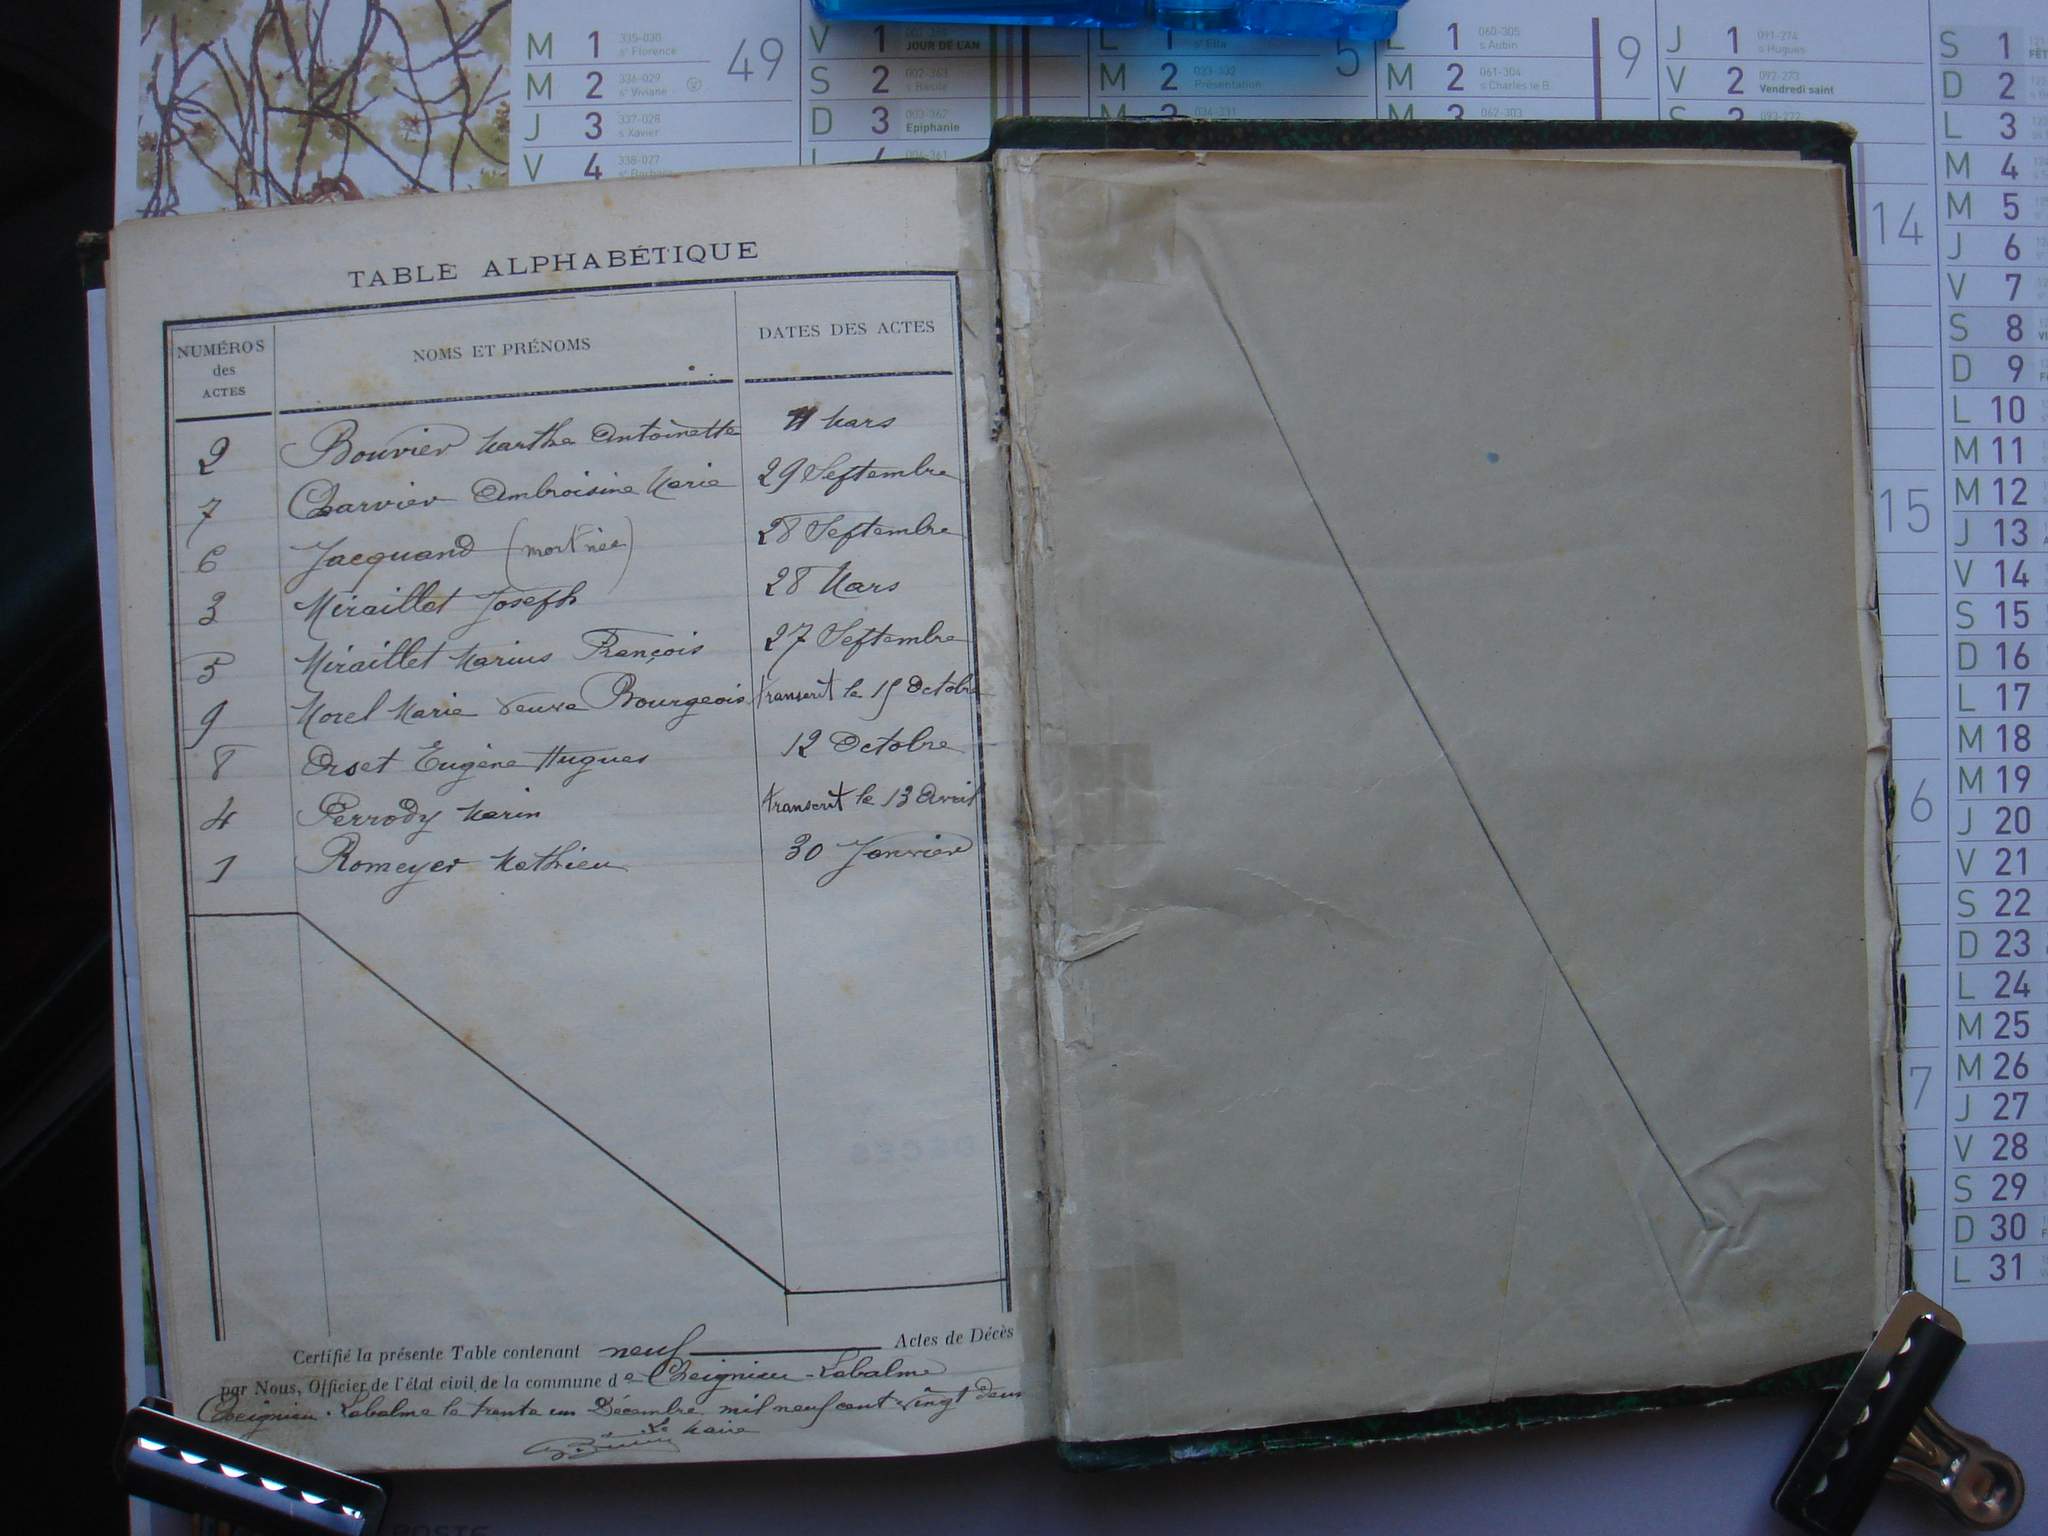 TABLE ALPHABÉTIQUE
NUMÉROS des ACTES NOMS ET PRÉNOMS DATES DES ACTES
2 Bouvier Marthe Antoinette Mars
7 Charvier Ambroisine Marie 29 Septembre
6 Jacquand (mort née) 28 Septembre
3 Miraillet Joseph 28 Mars
5 Miraillet Marius François 27 Septembre
9 Morel Marie veuve Bourgeois transcrit le 15 Octobre
8 Orset Eugène Hugues 12 Octobre
4 Perrody Marin transcrit le 13 Avril
1 Romeyer Mathieu 30 Janvier
Certifié la présente Table contenant neuf Actes de Décès
par Nous, Officier de l'état civil de la commune de Cheignieu-Labalme
Cheignieu-Labalme le trente un Décembre mil neuf cent vingt deux
Le Maire
M 1 335-030 st Florence 49
M 2 336-029 st Viviane
J 3 337-028 s Xavier
V 4 338-027
V 1 JOUR DE L'AN
S 2 002-363 s Basile
D 3 003-362 Epiphanie
L 1 st Ella 5
M 2 033-332 Présentation
M 3 034-331
L 1 060-305 s Aubin 9
M 2 061-304 s Charles le B.
M 3 062-303
J 1 091-274 s Hugues
V 2 092-273 Vendredi saint
S 3 093-272
14
15
6
7
S 1
D 2
L 3
M 4
M 5
J 6
V 7
S 8
D 9
L 10
M 11
M 12
J 13
V 14
S 15
D 16
L 17
M 18
M 19
J 20
V 21
S 22
D 23
L 24
M 25
M 26
J 27
V 28
S 29
D 30
L 31